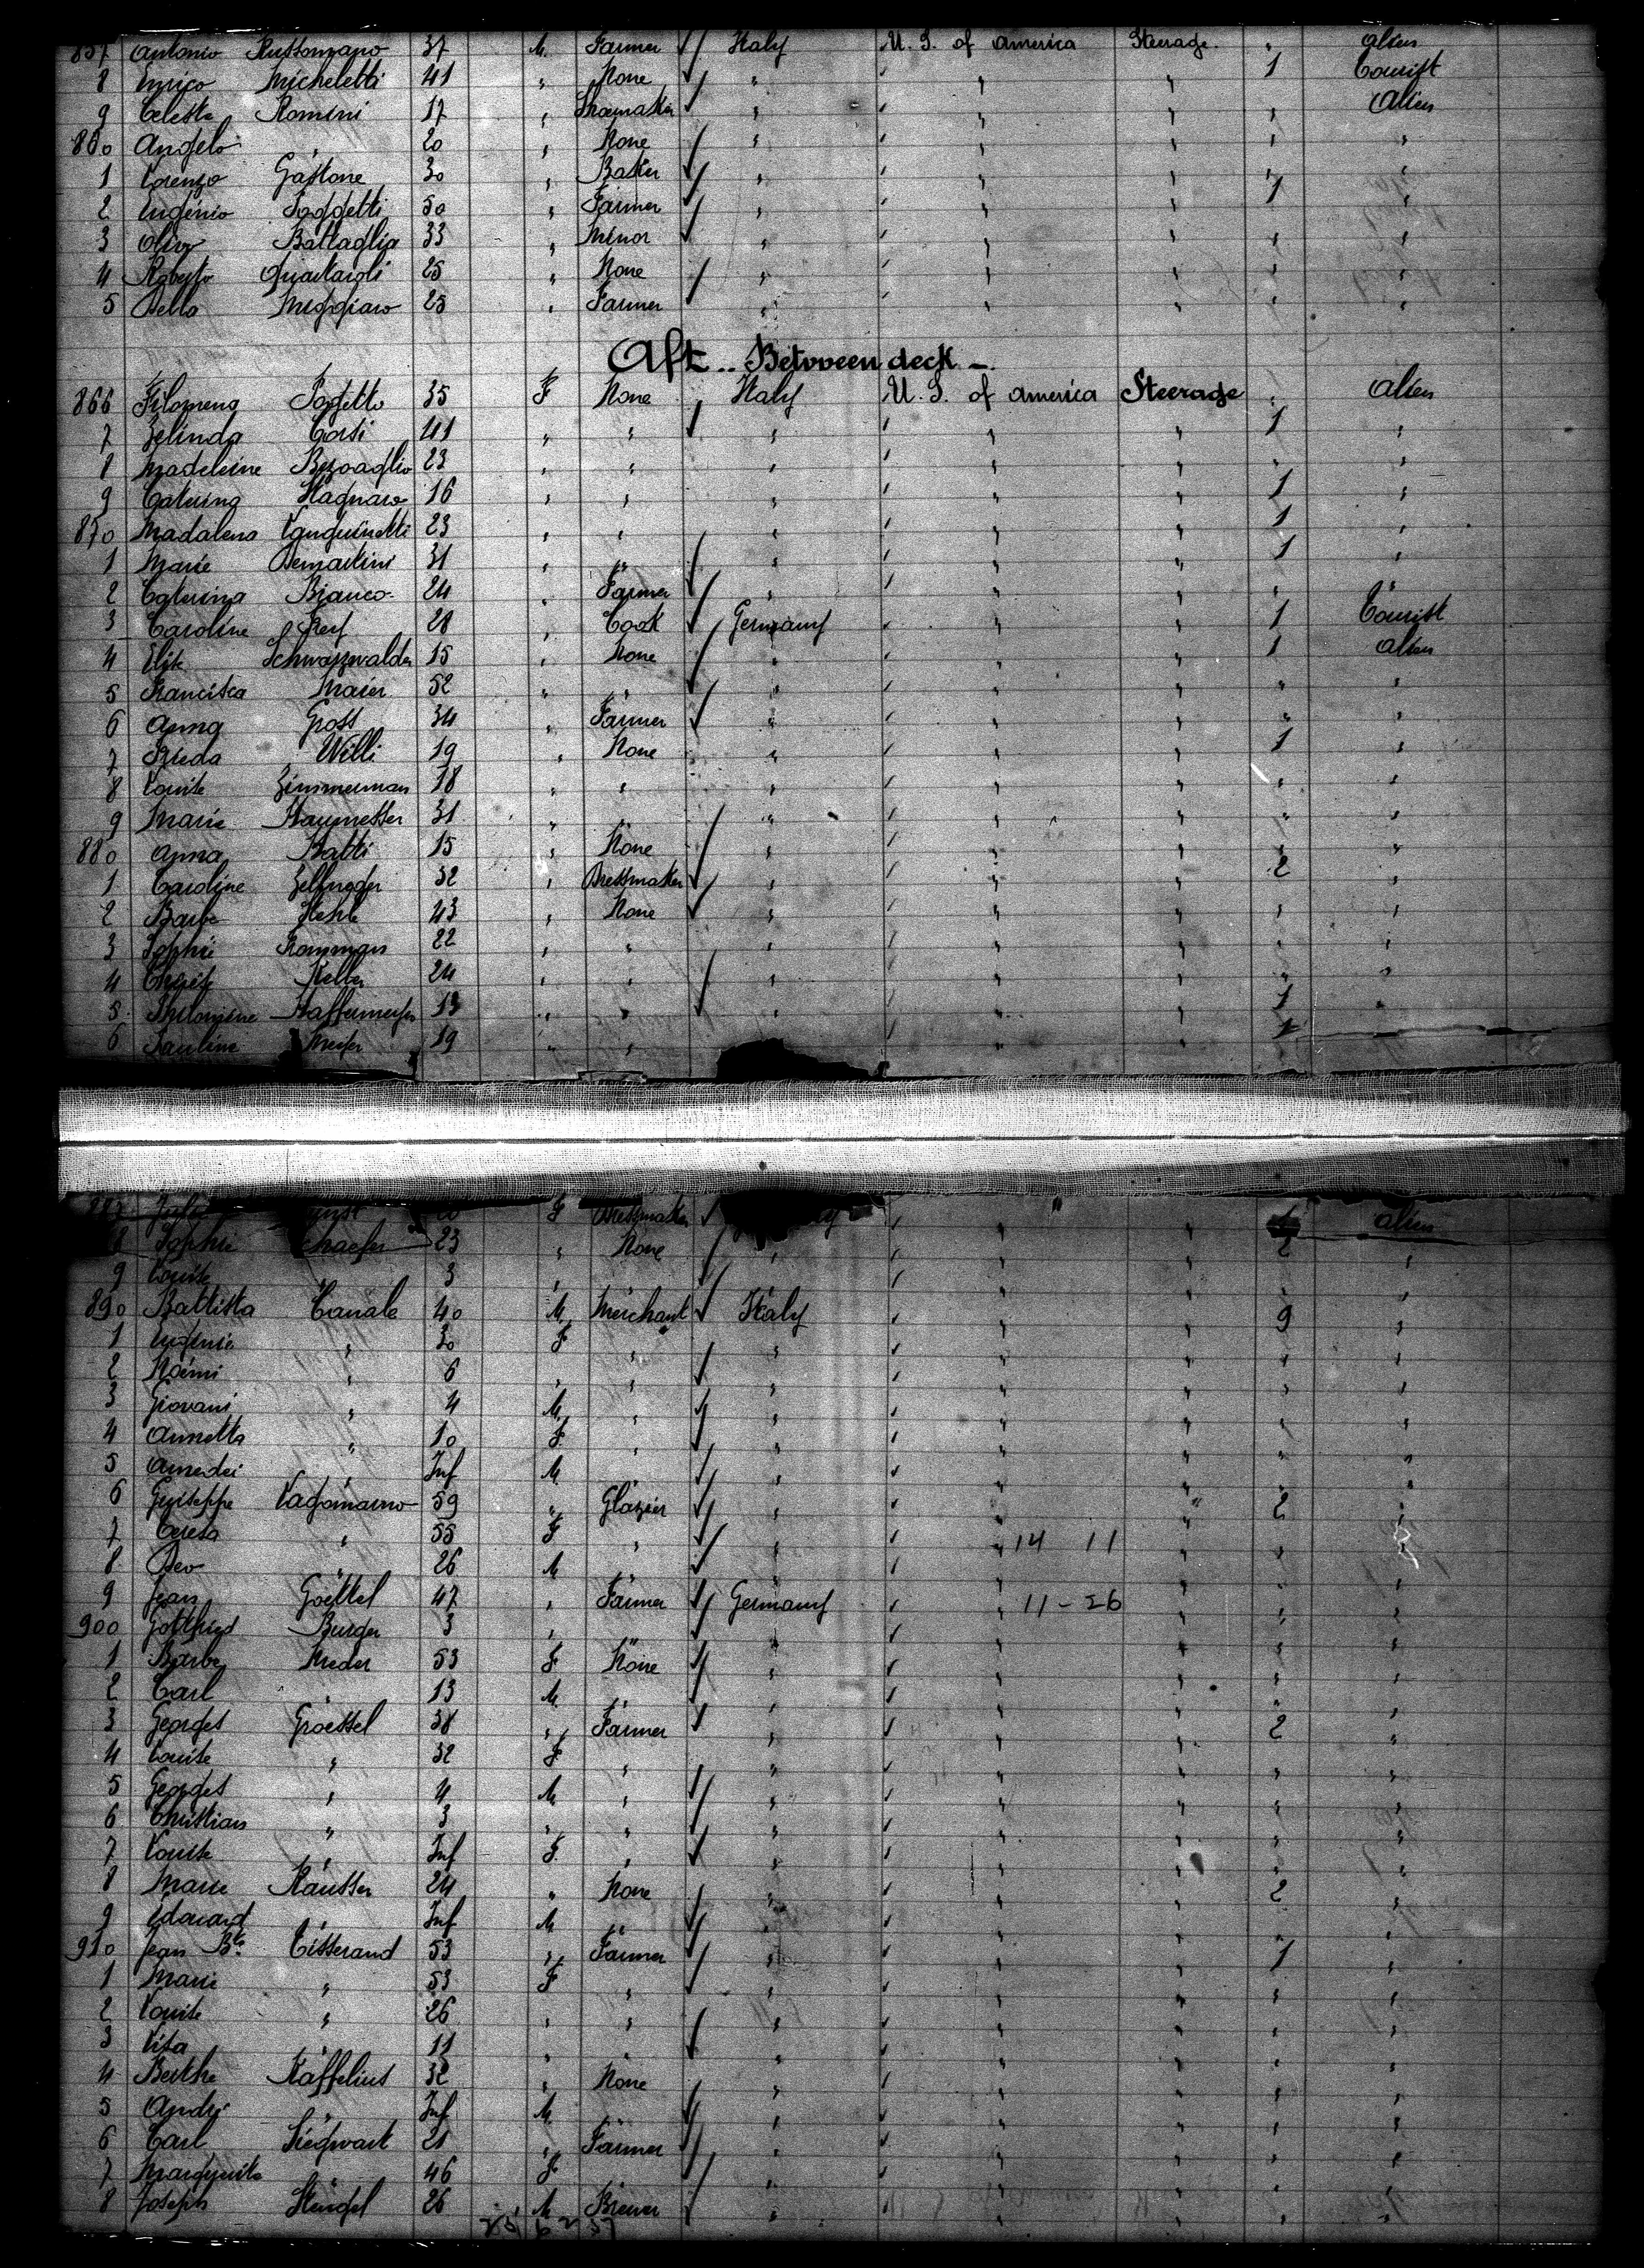 857 Antonio Russomano 37 M. Farmer Italy U. S. of America Steerage. " alien
8 Enrico Micheletti 41 " None " " " 1 Tourist
9 Celeste Romini 17 " Shoemaker " " " " Alien
860 Angelo " 20 " None " " " " "
1 Lorenzo Gastone 30 " Baker " " " " "
2 Eugenio Poggetti 50 " Farmer " " " 1 "
3 Oliva Battaglia 33 " Minor " " " " "
4 Roberto 25 " None " " " " "
5 Della Meggiaro 25 " Farmer " " " " "
Aft.. Between deck –.
866 Filomena Pogetto 35 F None Italy U. S. of America Steerage " alien
7 Zelinda Corsi 41 " " " " " 1 "
8 Madeleine Bezoaglio 23 " " " " " " "
9 Caterina Stagnaro 16 " " " " " 1 "
870 Madalena Sanguinetti 23 " " " " " 1 "
1 Marie Demartini 31 " " " " " 1 "
2 Caterina Bianco 24 " Farmer " " " " "
3 Caroline 28 " Cook Germany " " 1 Tourist
4 Elise Schwarzwalder 15 " None " " " 1 alien
5 Francisca Maier 52 " " " " " " "
6 Anna Gross 34 " Farmer " " " " "
7 Frieda Willi 19 " None " " " 1 "
8 Louise Zimmerman 18 " " " " " " "
9 Marie 31 " " " " " " "
880 Anna Batti 15 " None " " " " "
1 Caroline 32 " Dressmaker " " " 2 "
2 Barbe Stehle 43 " None " " " " "
3 Sophie Romman 22 " " " " " " "
4 Keller 24 " " " " " " "
5 Philomine Haffermeyer 13 " " " " " 1 "
6 Pauline Meyer 19 " " " " " 1
887 F Dressmaker " " alien
8 Sophie Schaefer 23 " None " " " 2 "
9 Louise " 3 " " " " " " "
890 Battista Canale 40 M. Merchant Italy " " 9 "
1 Eugenie " 30 F " " " " " "
2 Noemi " 6 " " " " " " "
3 Giovani " 4 M. " " " " " "
4 Annetta " 10 F. " " " " " "
5 Amedei " Inf M " " " " " "
6 Guiseppe Vagomarino 59 " Glazier " " " 2 "
7 Teresa " 55 F " " " 14 11 " " "
8 Deo " 26 M " " " " " "
9 Jean Goettel 47 " Farmer Germany " 11-26 " " "
900 Gottfried Burger 3 " " " " " " "
1 Barbe Meder 53 F None " " " " "
2 Carl " 13 M. " " " " " "
3 Georges Groessel 38 " Farmer " " " 2 "
4 Louise " 32 F " " " " " "
5 Georges " 4 M " " " " " "
6 Christian " 3 " " " " " " "
7 Louise " Inf F. " " " " " "
8 Marie Rausser 24 " None " " " 2 "
9 Edouard " Inf M " " " " " "
910 Jean Bte Tisserand 53 " Farmer " " " 1 "
1 Marie " 53 F " " " " " "
2 Louise " 26 " " " " " " "
3 Lisa " 11 " " " " " " "
4 Berthe Raffelius 32 " None " " " " "
5 André " Inf M " " " " " "
6 Carl Siegwart 21 " Farmer " " " " "
7 Marguerite " 46 F " " " " " "
8 Joseph Stengel 26 M Brewer " " " " "